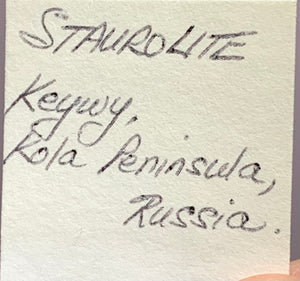 STAUROLITE
Keywy,
Kola Peninsula,
Russia.